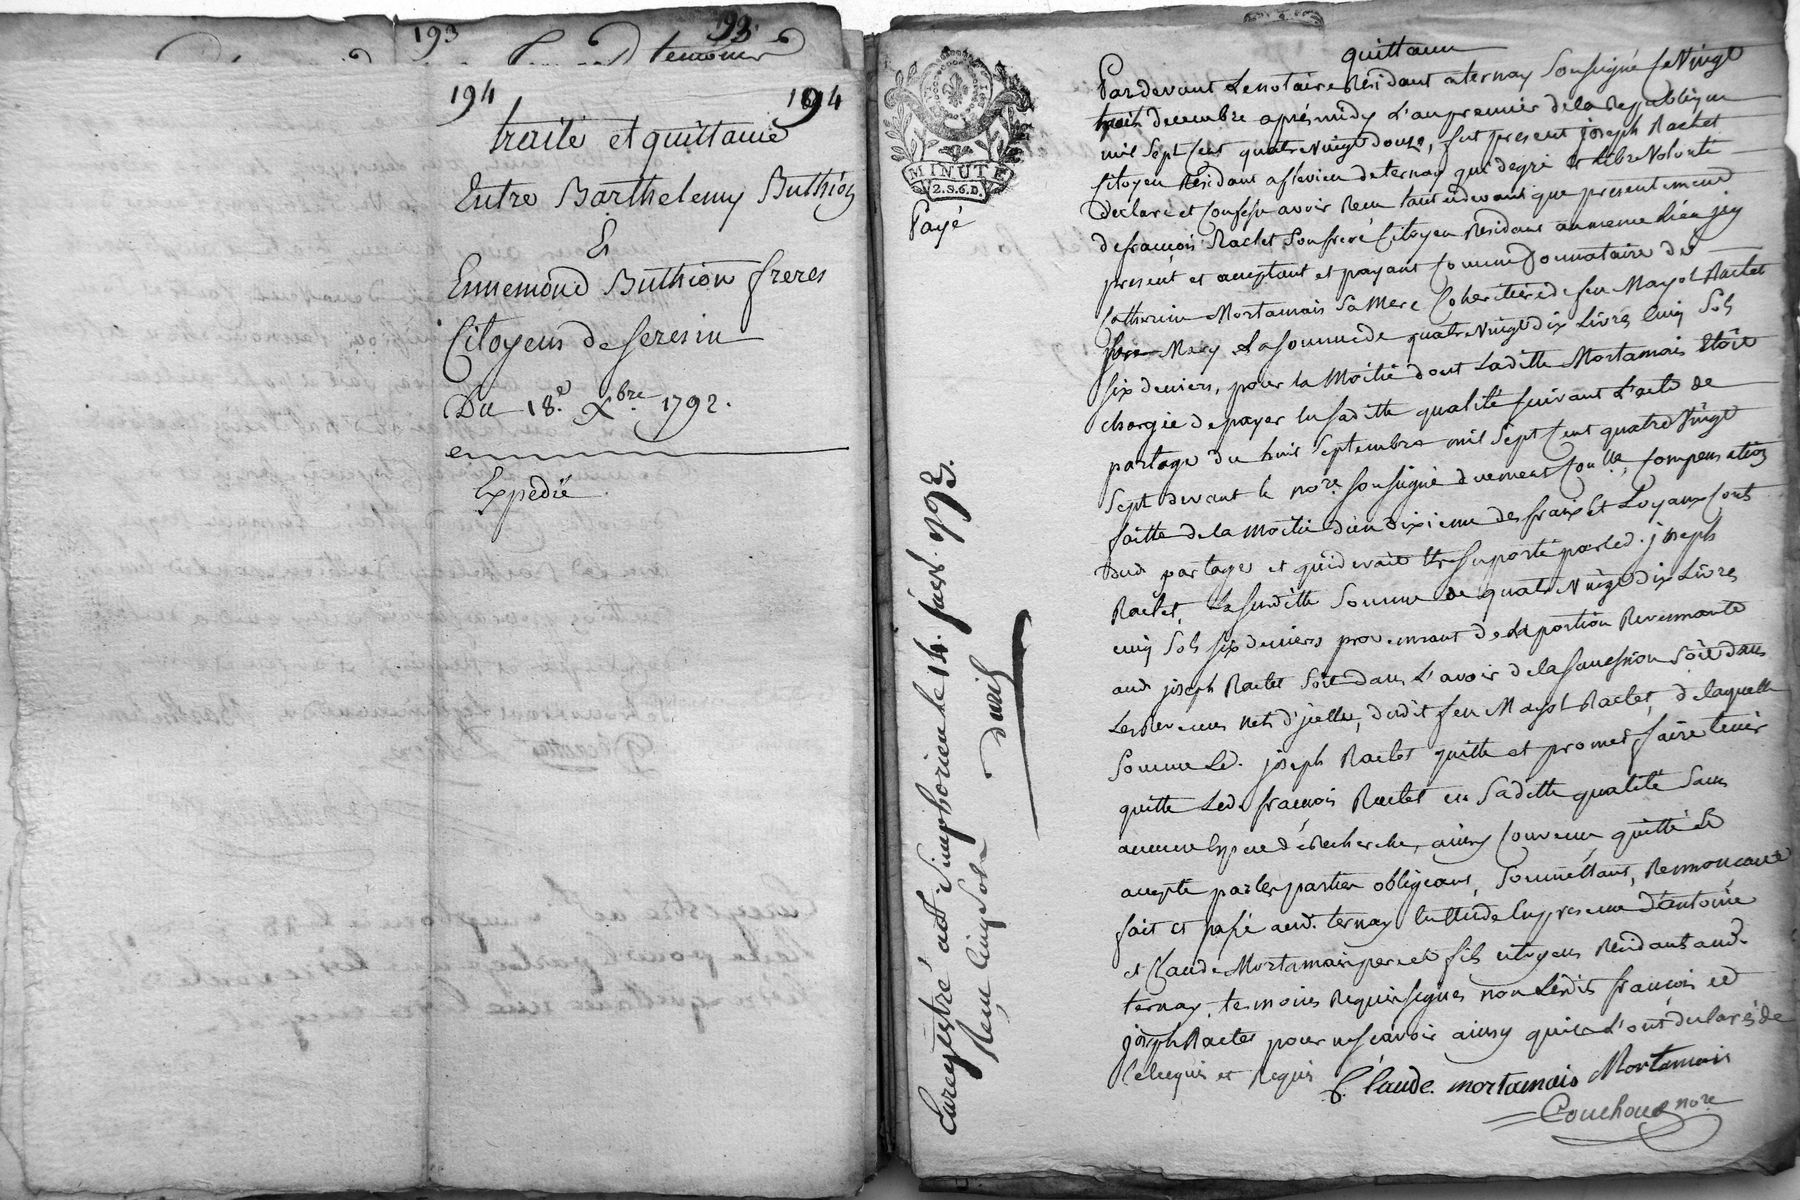 193
93
temoins
194
194
traité et quittance
Entre Barthelemy Buthion
Et
Ennemond Buthion freres
Citoyens de seresin
Du 18.e Xbre 1792.
Expedié
MINUTE
2.S.6.D.
Payé
Enregistré a St Simphorien le 14. janv. 1793.
Reçu cinq sols
quittance
Pardevant Le notaire Residant a ternay soussigné Ce Vingt
trois decembre aprés midy L'an premier de la Republique
mil sept Cent quatre Vingt douze, fut present joseph Raclet
Citoyen Residant a sievieu de ternay qui degré et Libre Volonté
declare et Confesse avoir Reçu tant cydevant que presentement
de françois Raclet son frere Citoyen Residant au meme Lieu jcy
present et acceptant et payant comme donnataire de
Catherine Mortamais sa Mere Coheritiere de feu Mayol Raclet
son Mary La somme de quatre Vingt dix Livres Cinq Sols
six deniers, pour la Moitié dont Laditte Mortamais Etoit
chargée de payer en saditte qualité suivant L'acte de
partage du huit septembre mil sept Cent quatre Vingt
sept devant le nore soussigné duement Conlle, Compensation
faitte de la Moitié d'un dixieme des fraix et Loyaux Couts
dud partage et qui devoit etre suporté par led. joseph
Raclet, La susditte somme de quatre Vingt dix Livres
cinq sols six deniers provennant de La portion Revennante
aud joseph Raclet soit dans L'avoir de la succession soit dans
Les Revenus nets d'jcelle, dudit feu Mayol Raclet, de laquelle
somme Led. joseph Raclet quitte et promet faire tenir
quitte Led. françois Raclet en saditte qualité sans
aucune Espece de Recherche, ainsy Convenu quitté et
accepté par les parties obligeant, soumettant, Renonçant
fait et passé aud. ternay Etude En presence d'antoine
et Claude Mortamais pere et fils citoyens Residants aud.
ternay, temoins Requis signés non Lesdits françois et
joseph Raclet pour ne sçavoir ainsy qu'ils L'ont declarés de
Ce Enquis et Requis C. Claude mortamais Mortamais
Couchoud nore